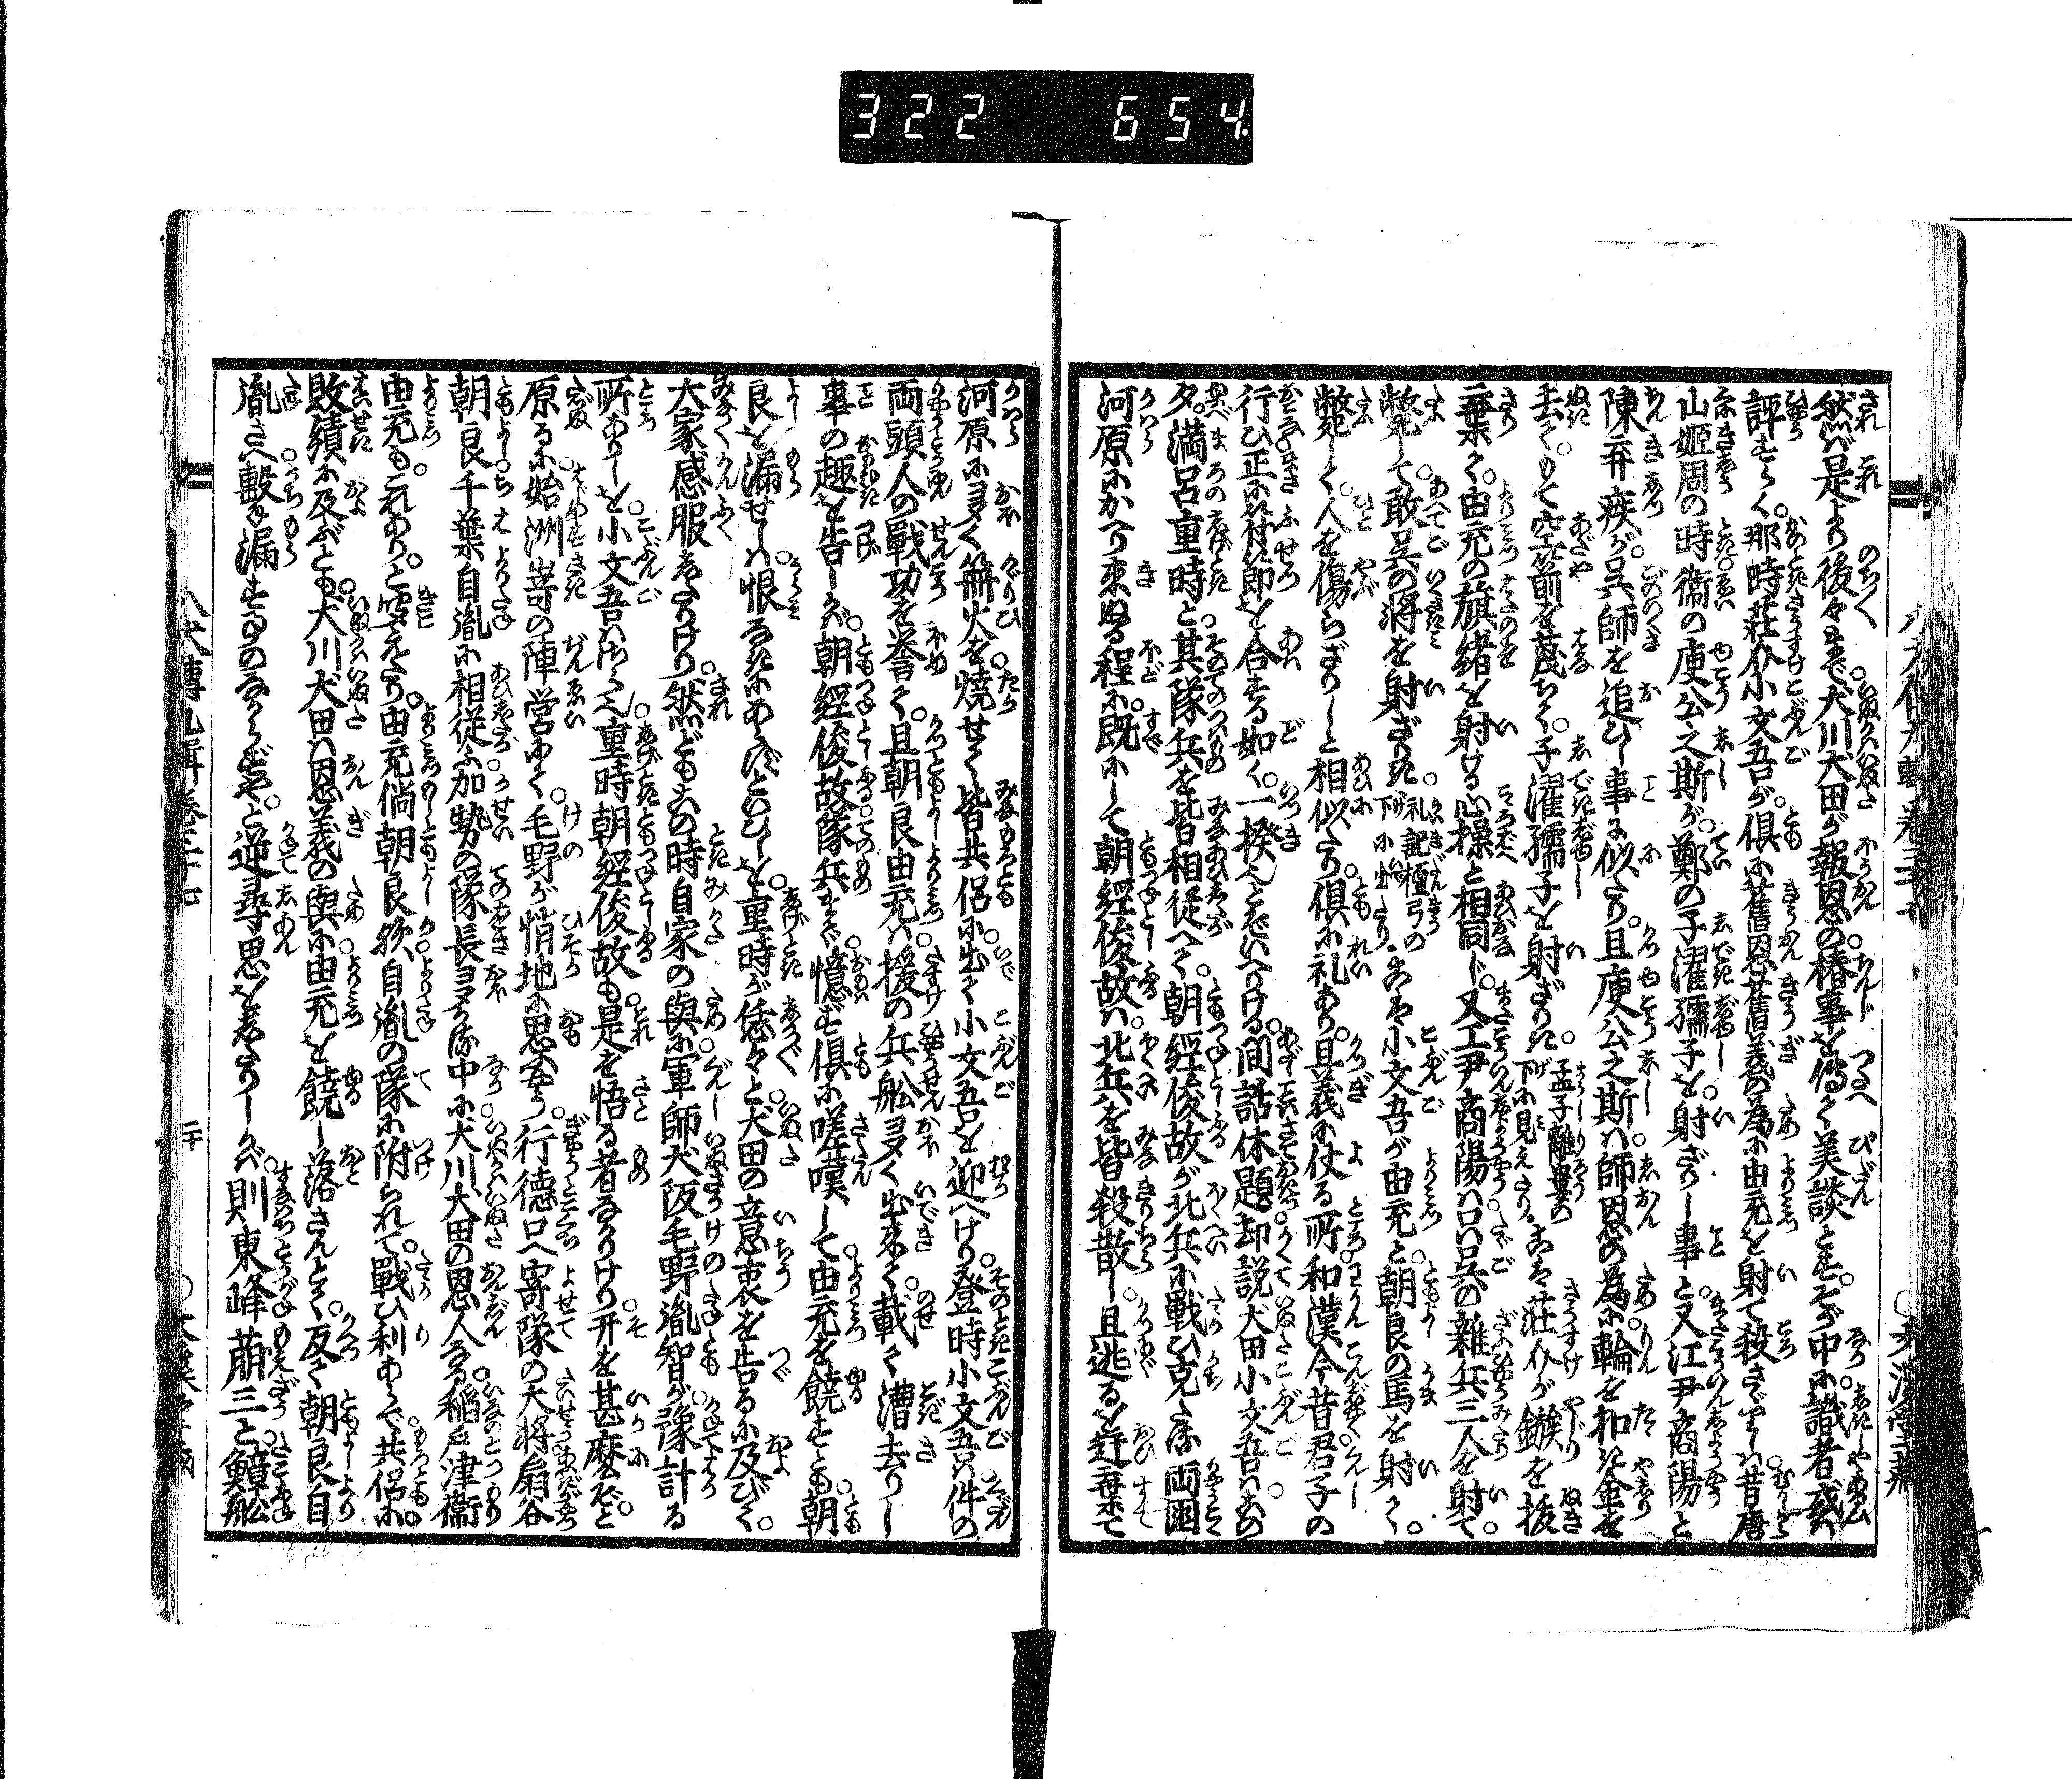 322 654
然ば是より後々まで犬川犬田が報恩の椿事を傳へて美談とす。そが中に識者或は
評すらく。那時莊介小文吾が。倶に舊恩舊義の為に由充を射て殺さゞりしは昔唐
山姫周の時衞の庾公之斯が。鄭の子濯孺子を。射ざりし事と。又江尹商陽と
陳弃疾が。呉師を追ひし事に似たり。且庾公之斯は。師恩の為に。輪を扣き金を
去て。もて空箭を茂ちて。子濯孺子を射ざりき。孟子離婁の下に見えたり。こは莊介が鏃を抜
棄て。由充の旗緒を射ける心操と相同じ。又工尹商陽は。呉の雜兵三人を射て。
斃して。敢呉の將を射ざりき。礼記檀弓の下に出たり。こは小文吾が由充と。朝良の馬を射て。
斃して。人を傷らざりしと相似たり。倶に礼あり。且義に仗る所。和漢今昔君子の
行ひ正に符節を合する如く。一揆といへりける。間話休題。却説犬田小文吾は。この
夕。満呂重時と其隊兵を皆相従へて。朝經俊故が北兵に戰ひ克たる。両国
河原にかへり来ぬる程に。既にして朝經俊故は。北兵を皆殺散し。且逃るを赶棄て
河原に多く篝火を。焼せて皆共侶に。出て小文吾を迎へけり。登時小文吾は。件の
両頭人の戰功を誉て。且朝良由充は。援の兵舩多く出来て。載て漕去りし
事の趣を告しかば。朝經俊故隊兵まで。憶ず倶に嗟嘆して。由充を饒すとも。朝
良を漏せしは。恨なきにあらずといひしを。重時が恁々と。犬田の意衷を告るに及びて。
大家感服したりけり。然どもこの時自家の與に。軍師犬阪毛野胤智が。豫計る
所ありしを。小文吾はさらへ。重時朝經俊故も。是を悟る者なかりけり。开を甚麽ぞと
原るに。始洲嵜の陣営にて。毛野が悄地に思ふやう。行德口へ寄隊の大將扇谷
朝良千葉自胤に相従ふ。加勢の隊長多かる中に。犬川犬田の恩人なる。稲戸津衞
由充も。これありと聞えたり。由充倘朝良欤。自胤の隊に附られて。戰ひ利あらで共侶に。
敗績に及ぶとも。犬川犬田は恩義の與に。由充を饒し落さんとて。反て朝良自
胤さへ。轂を漏すものならずやと。逆尋思をしたりしかば。則東峰萠三と。鱆舩